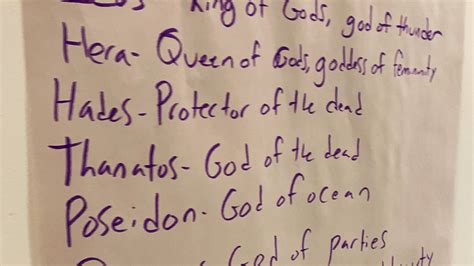 King of Gods, god of thunder
Hera- Queen of Gods, goddess of
Hades- Protector of the dead
Thanatos- God of the dead
Poseidon- God of ocean
God of parties